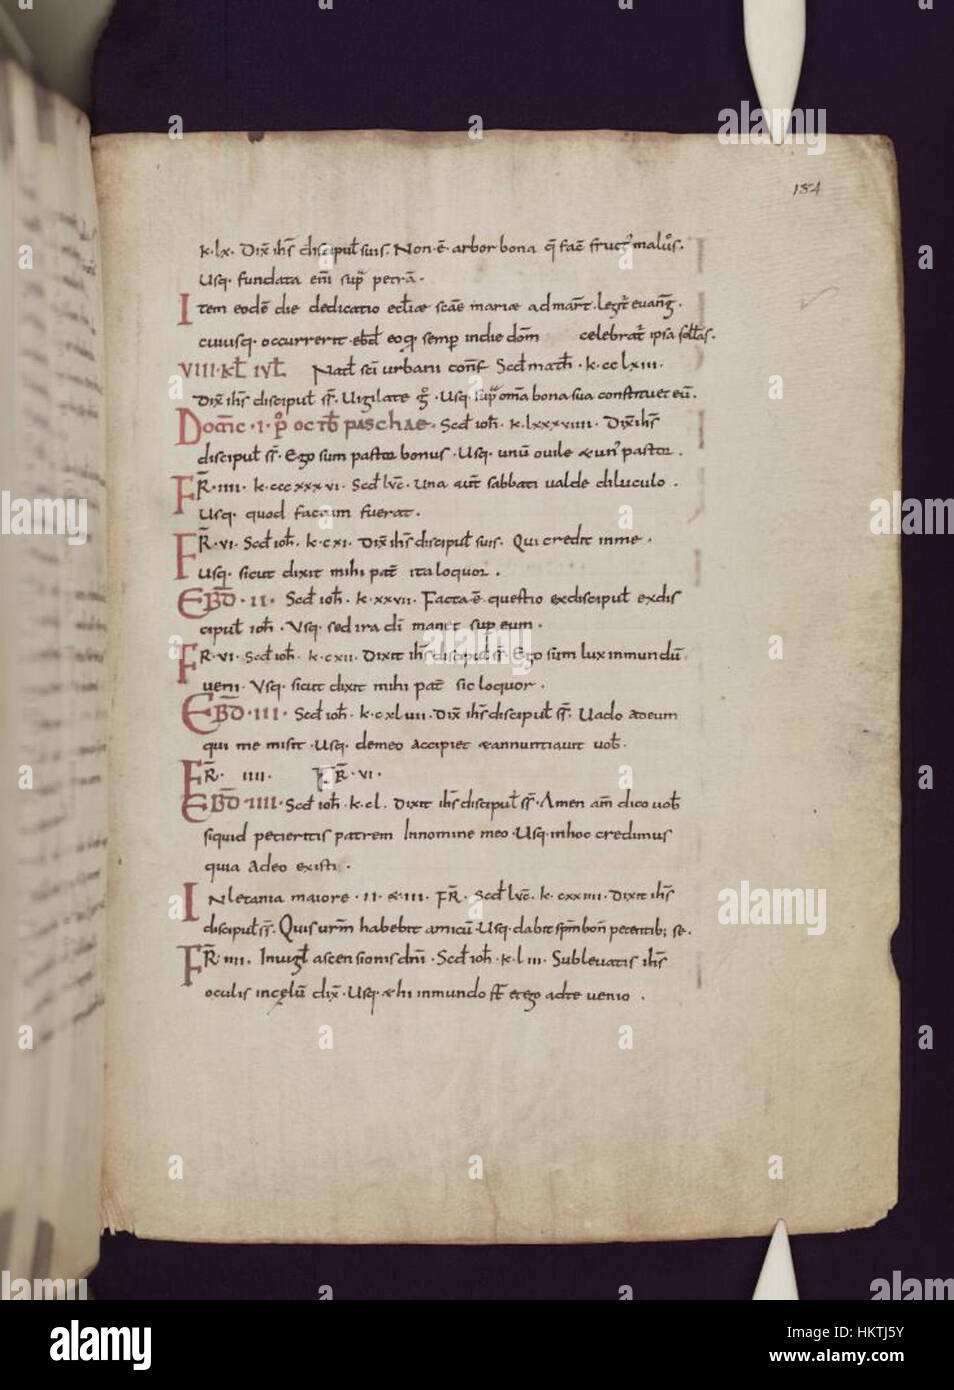 184
k · lx · Dix̄ ih̄s discipuł suis. Non · ē · arbor bona q̄ fac̄ fructꝰ malos.
Usq · fundata em̄ supͣ petrā ·
Item eodē die dedicatio ecłiæ scāe mariæ ad mart̄. Legit̄ evang̅ ·
cuiusq · occurrerit · ebđ eoq · semp̱ indie dom̄ celebrat̄ ipsa
VIII · KŁ · IVŁ Nat̄ sc̄i urbani conf̄ Scđ math̄ · k · cclxiii ·
Dix̄ ih̄s discipuł s̄r̄. Uigilate g̊ · Usq · supͣ om̄a bona sua constituet eū ·
Domīc · I · p̊ octb̄ paschae · Scđ ioh̄ · k · lxxxviiii · Dix̄ ih̄s
discipuł s̄r̄ · Ego sum pastor bonus · Usq · unū ovile & unꝰ pastor ·
FR̄ · iiii · k · cccxxxvi · Scđ luc̄ · Una aut̄ sabbati ualde diluculo ·
Usq · quod factum fuerat ·
FR̄ · vi · Scđ ioh̄ · k · cxi · Dix̄ ih̄s discipuł suis · Qui credit inme ·
Usq · sicut dixit mihi pat̄ ita loquor ·
EBD̄ · II · Scđ ioh̄ · k · xxvii · Facta ē questio exdiscipuł exdis
cipuł ioh̄ · Vsq · sed ira dī manet sup̱ eum ·
FR̄ · vi · Scđ ioh̄ · k · cxii · Dixit ih̄s discipuł s̄r̄ · Ego sum lux inmundū
ueni · Vsq · sicut dixit mihi pat̄ sic loquor ·
EBD̄ · III · Scđ ioh̄ · k · cxlvii · Dix̄ ih̄s discipuł s̄r̄ · Uado adeum
qui me misit · Usq · demeo accipiet & annuntiauit uob̄ ·
FR̄ · iiii · FR̄ · vi ·
EBD̄ · IIII · Scđ ioh̄ · k · cl · Dixit ih̄s discipuł s̄r̄ · Amen am̄ dico uob̄
siquid petieritis patrem Innomine meo · Usq · inhoc credimus
quia adeo existi ·
INletania maiore · II · & · III · FR̄ · Scđ luc̄ · k · cxxiiii · Dixit ih̄s
discipuł s̄r̄ · Quis urm̄ habebit amicū · Usq · dabit sp̄m bon̄ petentib; se ·
FR̄ · iiii · Inuigł ascensionis dn̄i · Scđ ioh̄ · k · liii · Subleuatis ih̄s
oculis incęlū dix̄ · Usq · & hi inmundo st̄ et ego adte uenio ·
alamy
HKTJ5Y
www.alamy.com